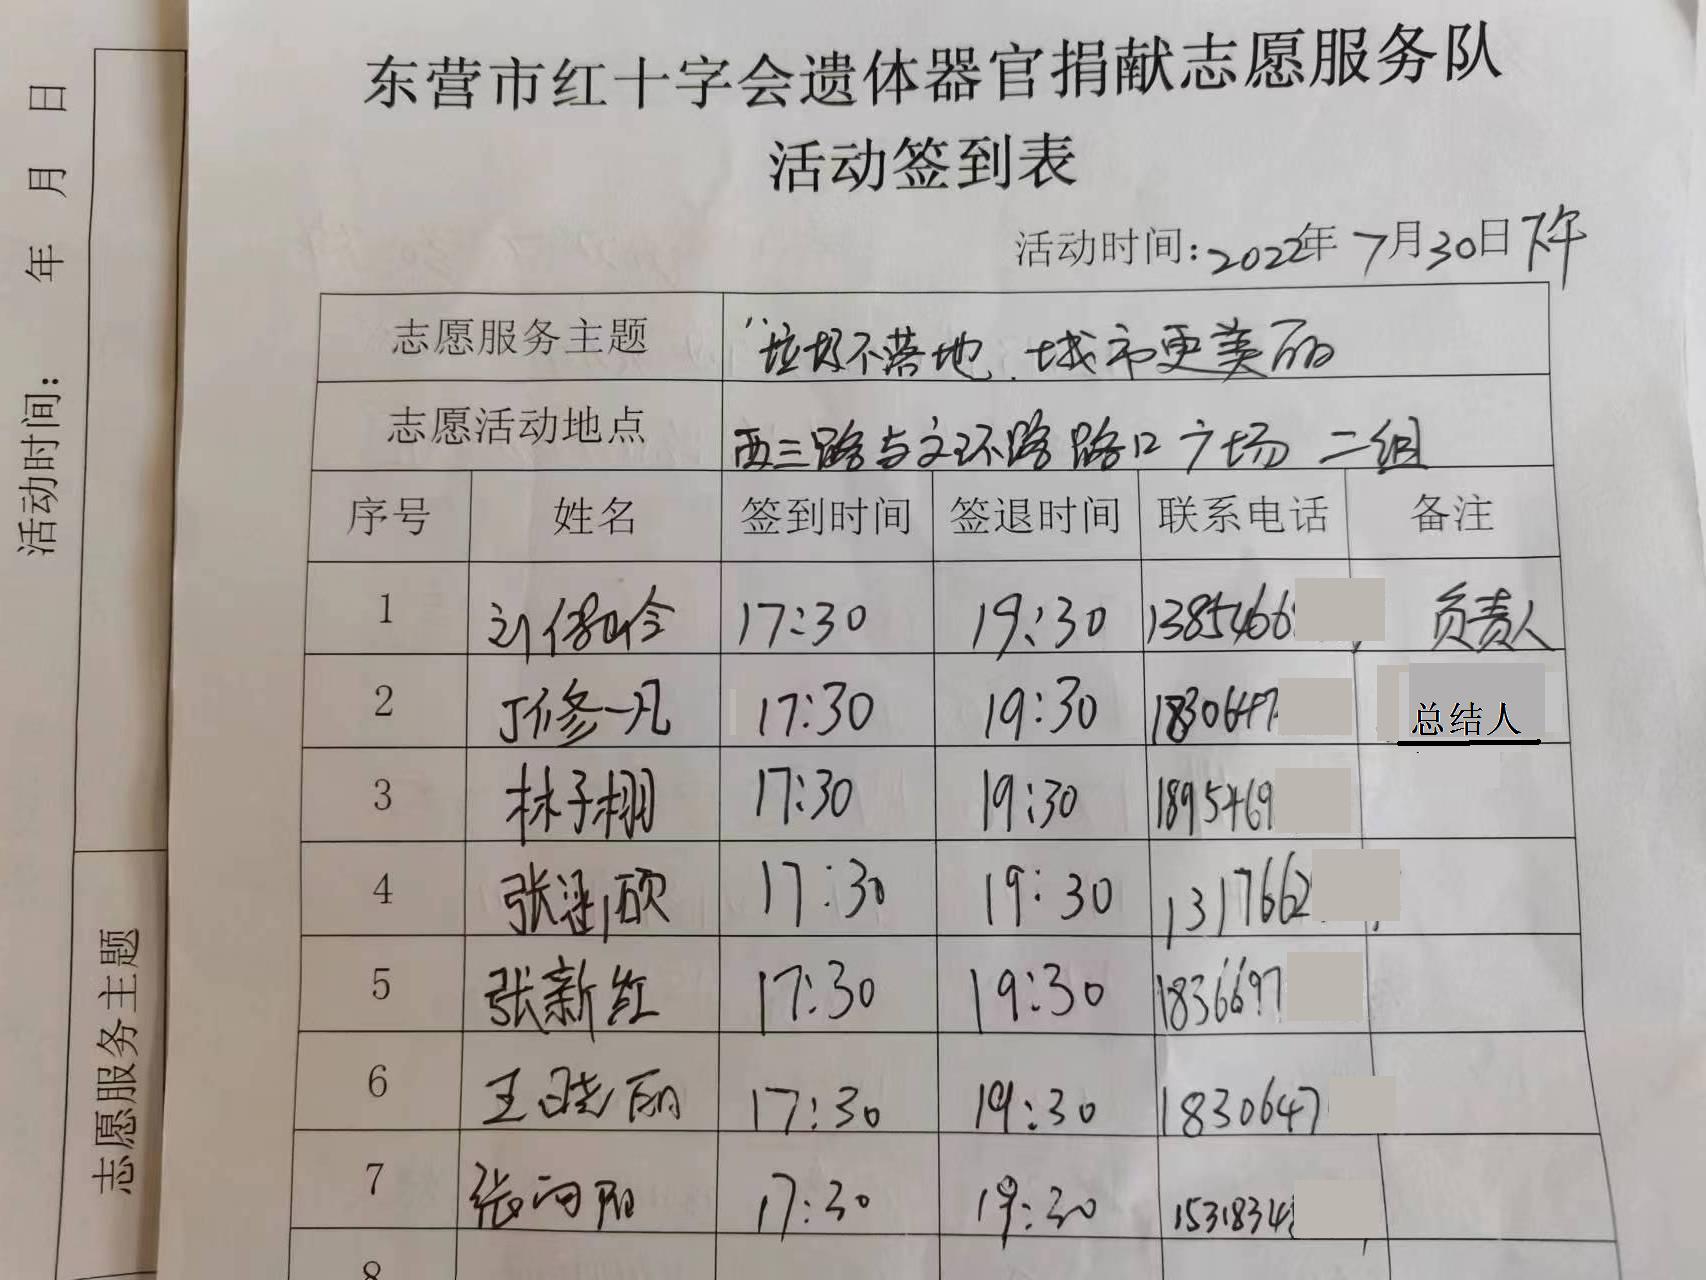 东营市红十字会遗体器官捐献志愿服务队
活动签到表
活动时间:2022年 7月30日 下午
志愿服务主题 "垃圾不落地、城市更美丽
志愿活动地点 西三路与文环路路口广场 二组
序号 姓名 签到时间 签退时间 联系电话 备注
1 17:30 19:30 1385466 负责人
2 丁修一凡 17:30 19:30 1830647 总结人
3 林子栩 17:30 19:30 1895469
4 张涵硕 17:30 19:30 1317662
5 张新红 17:30 19:30 1836697
6 王晓丽 17:30 19:30 1830647
7 张向阳 17:30 19:30 1531834
8
活动时间: 年 月 日
志愿服务主题